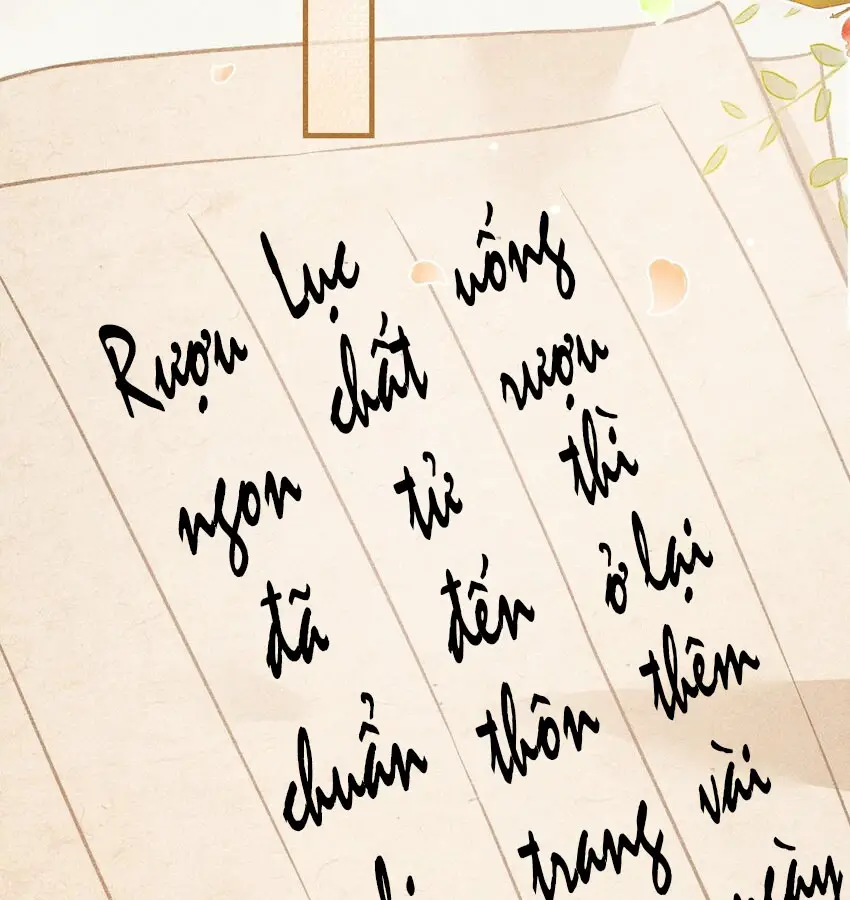 Rượu ngon đã chuẩn
Lục chất tử đến thôn trang
uống rượu thì ở lại thêm vài ngày